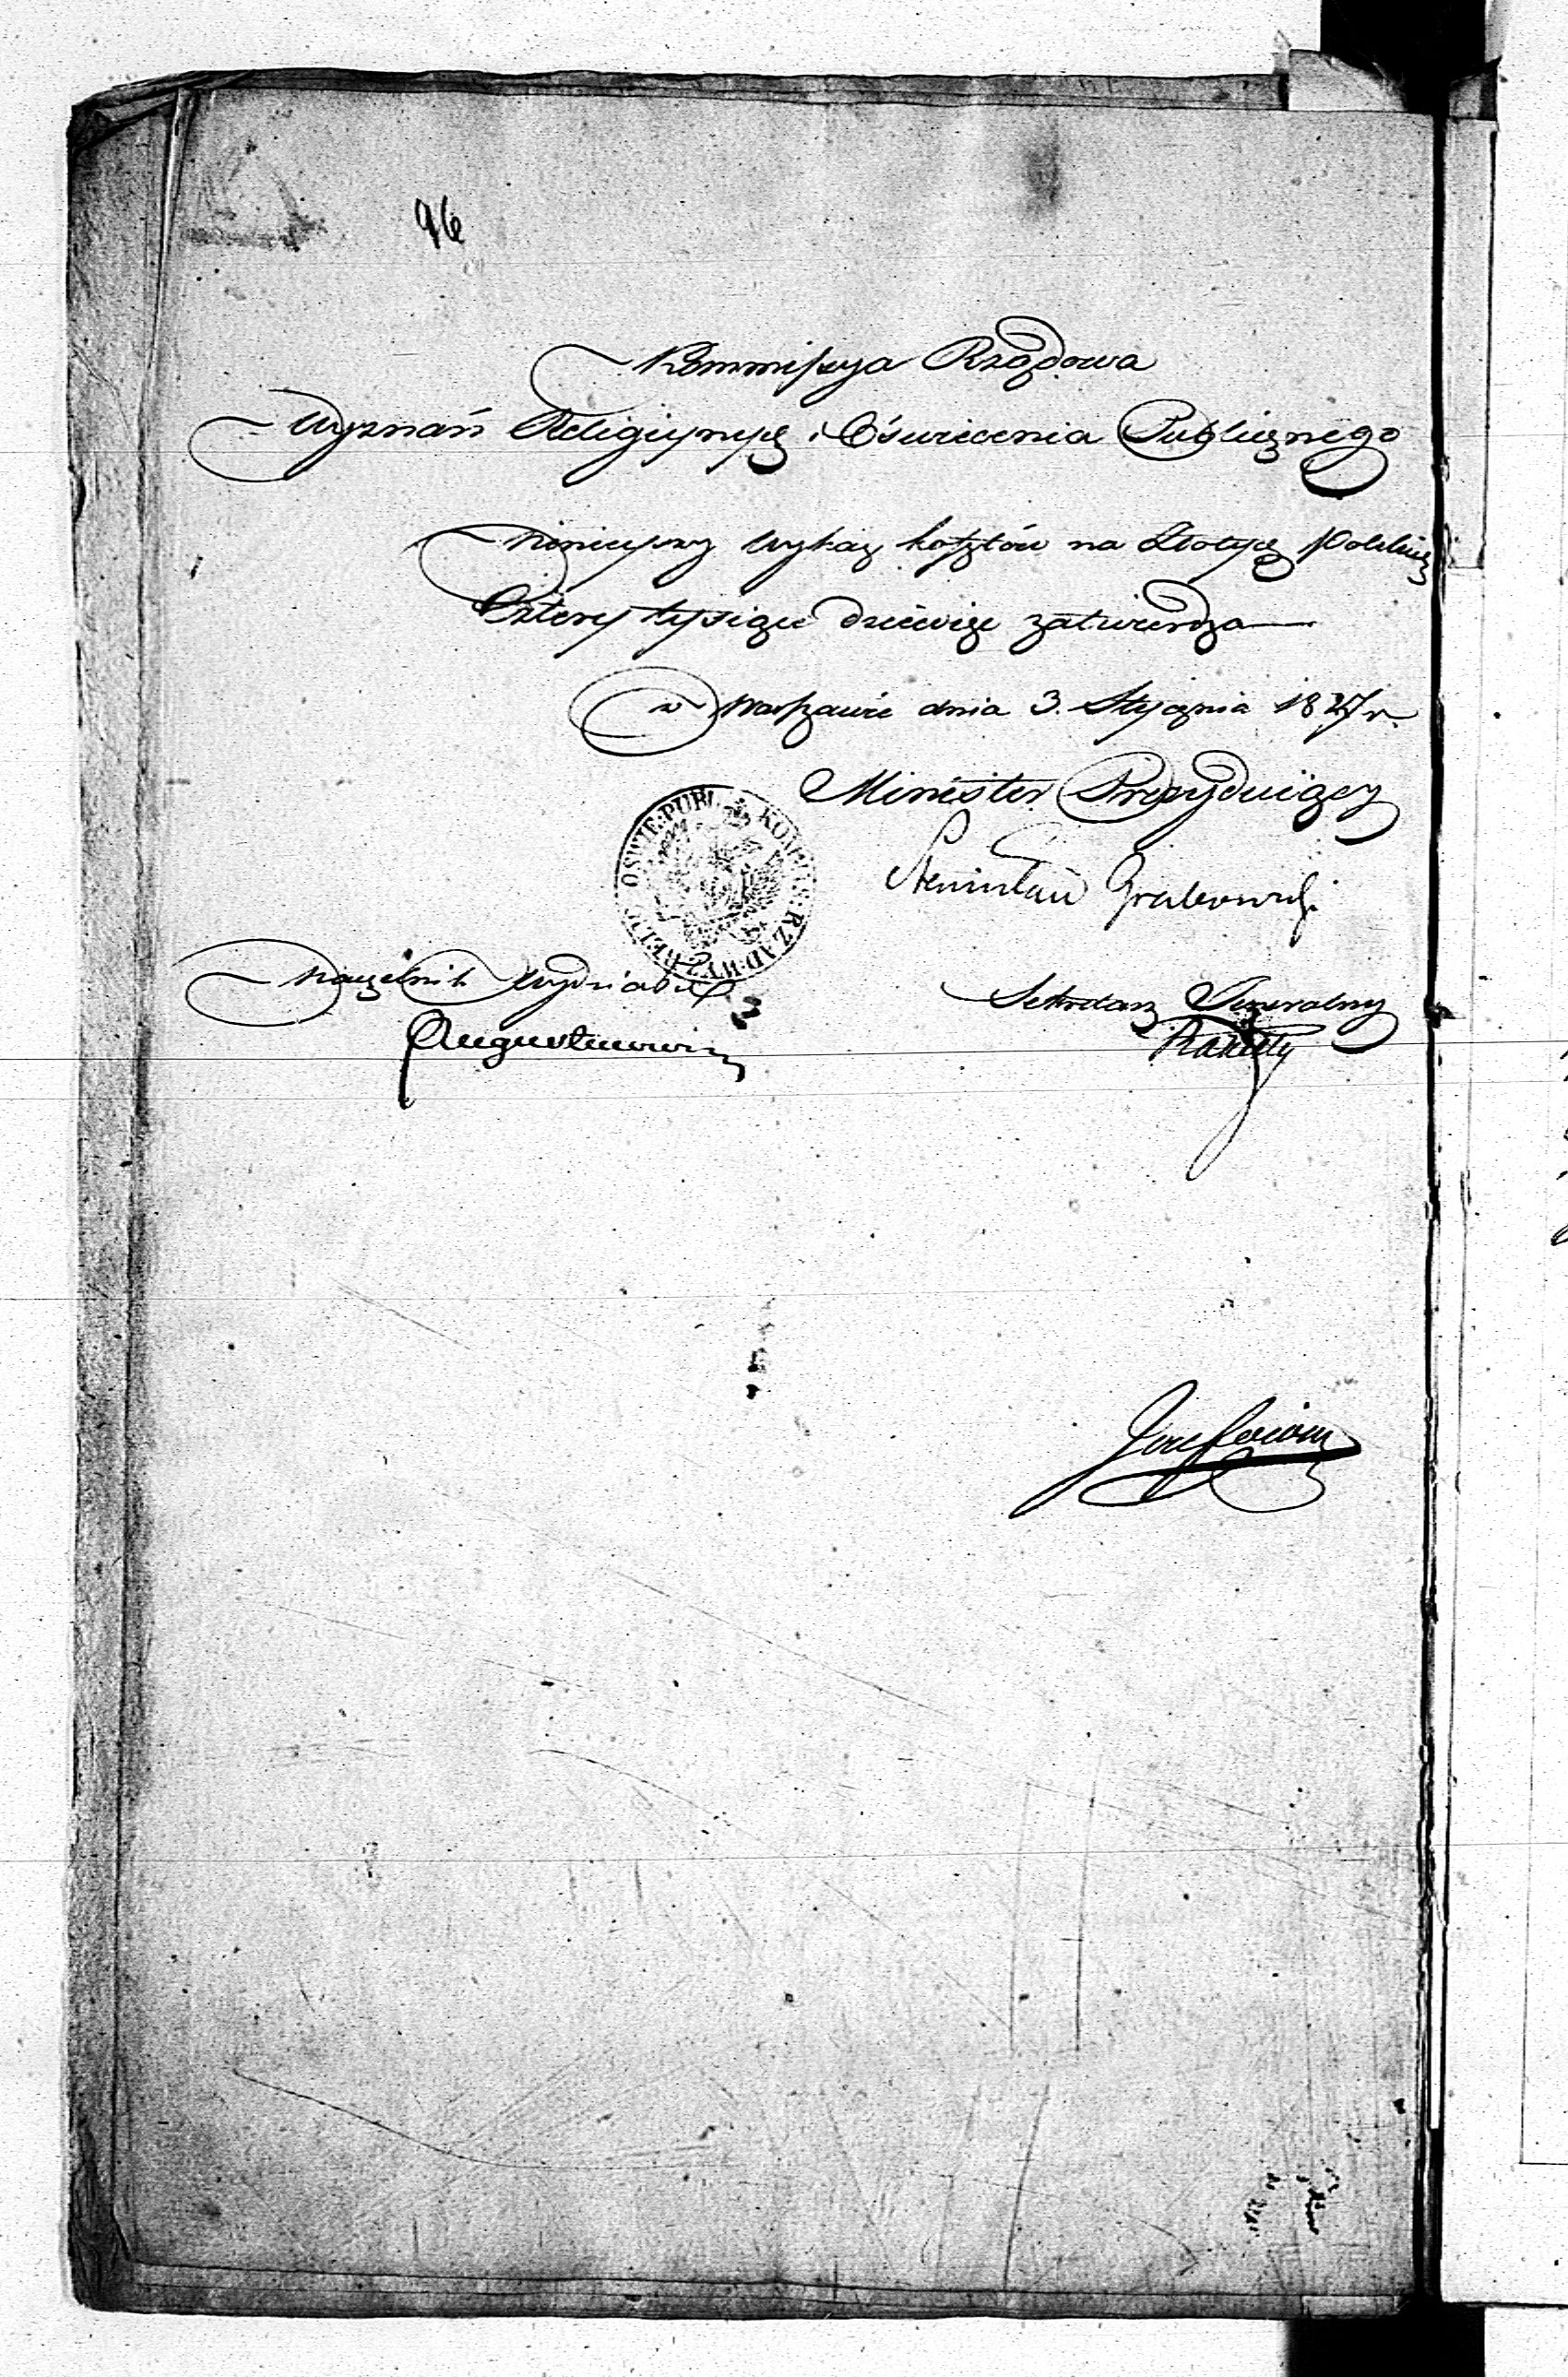 96
Kommissya Rządowa
Wyznań Religijnych i Oświecenia Publicznego
Ninieyszy wykaz kosztów na Złotych Polskich
Cztery tysiące dziewięć zatwierdza
w Warszawie dnia 3. Stycznia 1827 r.
Minister Prezyduiący
Stanisław Grabowski
KOMMIS: RZĄD: WYZ: RELIG: OŚWIE: PUBL:
Naczelnik Wydziału
Sekretarz Generalny
Augustinowicz